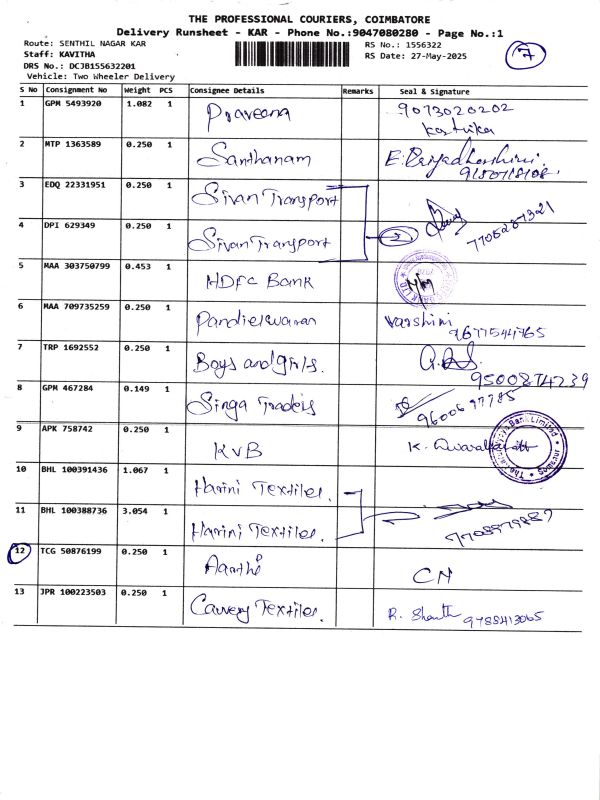 THE PROFESSIONAL COURIERS, COIMBATORE
Delivery Runsheet - KAR - Phone No.:9047080280 - Page No.:1
Route: SENTHIL NAGAR KAR
RS No.: 1556322
7
Staff: KAVITHA
RS Date: 27-May-2025
DRS No.: DCJB155632201
Vehicle: Two Wheeler Delivery
S No Consignment No Weight PCS Consignee Details Remarks Seal & Signature
1 GPM 5493920 1.082 1 Praveena 9073020202
Karthika
2 MTP 1363589 0.250 1 Santhanam
9150718108
3 EDQ 22331951 0.250 1 Sivan Transport
4 DPI 629349 0.250 1 Sivan Transport 7705287321
5 MAA 303750799 0.453 1 HDFC Bank
6 MAA 709735259 0.250 1 Pandieswaran Varshini
9677544765
7 TRP 1692552 0.250 1 Boys and girls.
9500874239
8 GPM 467284 0.149 1 Singa Traders 9600697785
9 APK 758742 0.250 1 KVB
10 BHL 100391436 1.067 1 Harini Textiles.
11 BHL 100388736 3.054 1 Harini Textiles.
12 TCG 50876199 0.250 1 Aarthi CN
13 JPR 100223503 0.250 1 Cauvery Textiles. R. Shanthi 9788413065